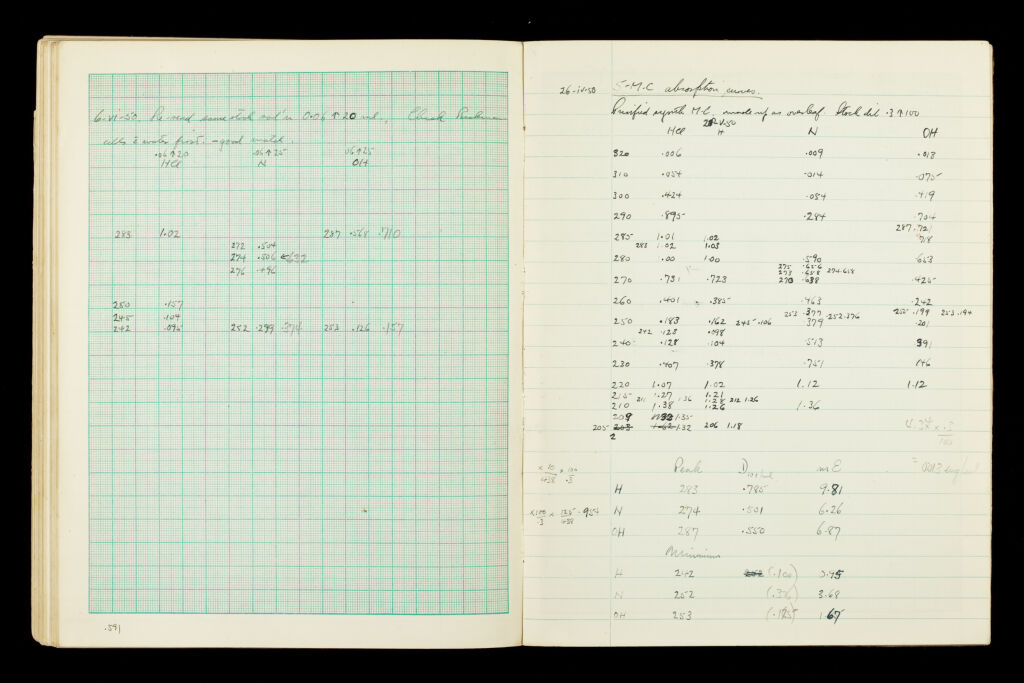 6-vi-50. Re-read same stock sol'n 0.06 ↑ 20 ml. Check Beckman
cells 2 water first. - good match.
.06↑20 .06↑25 .06↑25
HCl N OH
283 1.02 287 .568 .710
272 .504
274 .506 ← 632
276 .496
250 .157
245 .104
242 .095 252 .299 .374 253 .126 .157
.591
26-iv-50 5-M-C absorption curves.
Purified synth M-C, made up as overleaf. Stock dil .3 ↑ 100
HCl H N OH
320 .006 .009 .018
310 .054 .014 .075
300 .424 .084 .419
290 .895 .284 .704
287 .721
285 1.01 1.02 718
283 1.02 1.03
280 .00 1.00 .590 .653
275 .656
273 .658 274 .658
270 .731 .723 270 .638 .425
260 .401 .385 .463 .242
253 .377 252 .376 255 .199 253 .194
250 .183 .162 245 .106 379 .201
242 .123 .098
240 .128 .104 .513 391
230 .407 .378 .751 846
220 1.07 1.02 1.12 1.12
215 1.27 1.21
211 1.36 1.28 212 1.26
210 1.38 1.26 1.36
209 1.35
205 1.32 206 1.18
2
4.34 × .3
100
× 10/438 × 100/.3
Peak mE
H 283 .785 9.81
N 274 .501 6.26
×100/.3 × 125/438 = 954
OH 287 .550 6.87
Minimum
H 242 (.100)
N 252 3.68
OH 253 (.125) 1.67